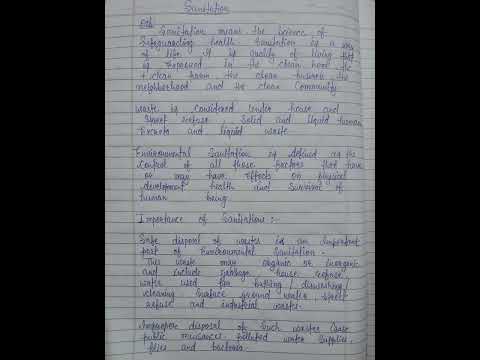 Sanitation
Def Sanitation means the science of
Safeguarding health Sanitation is a way
of life. It is quality of living that
is expressed in the clean home, the
clean farm the clean business the
neighborhood and the clean Community
Waste is considered under house and
Street refuse, solid and liquid human
Excreta and liquid waste
Environmental Sanitation is defined as the
Control of all those factors that have
or may have effects on physical
development health and survival of
human being
Importance of Sanitation :-
Safe disposal of wastes is an important
part of Environmental Sanitation -
This waste may organic or inorganic
and include garbage, house refuse,
water used for bathing / dishwashing /
cleaning surface ground water, street
refuse and industrial wastes.
disposal of such wastes cause
public nuisances. Polluted water supplies,
flies and bacteria